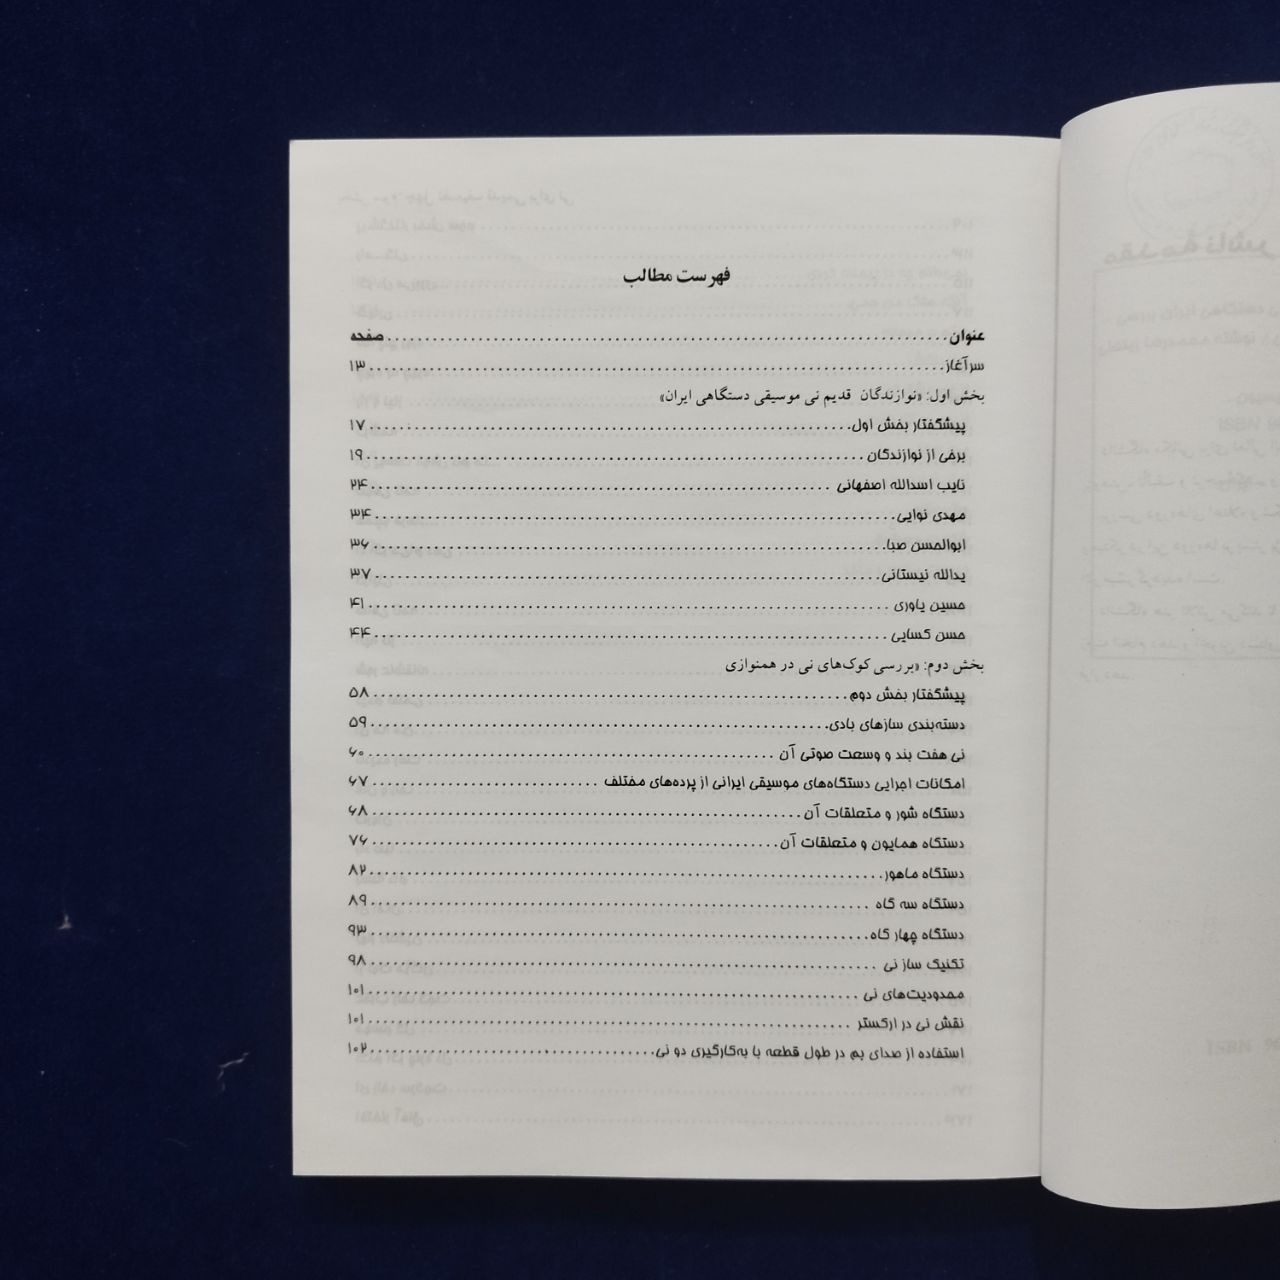 فهرست مطالب
عنوان صفحه
سرآغاز ۱۳
بخش اول: «نوازندگان قدیم نی موسیقی دستگاهی ایران»
پیشگفتار بخش اول ۱۷
برخی از نوازندگان ۱۹
نایب اسدالله اصفهانی ۲۴
مهدی نوایی ۳۴
ابوالحسن صبا ۳۶
یدالله نیستانی ۳۷
حسین یاوری ۴۱
حسن کسایی ۴۴
بخش دوم: «بررسی کوک‌های نی در همنوازی
پیشگفتار بخش دوم ۵۸
دسته‌بندی سازهای بادی ۵۹
نی هفت بند و وسعت صوتی آن ۶۰
امکانات اجرایی دستگاه‌های موسیقی ایرانی از پرده‌های مختلف ۶۷
دستگاه شور و متعلقات آن ۶۸
دستگاه همایون و متعلقات آن ۷۶
دستگاه ماهور ۸۲
دستگاه سه گاه ۸۹
دستگاه چهار گاه ۹۳
تکنیک ساز نی ۹۸
محدودیت‌های نی ۱۰۱
نقش نی در ارکستر ۱۰۱
استفاده از صدای بم در طول قطعه با به‌کارگیری دو نی ۱۰۲